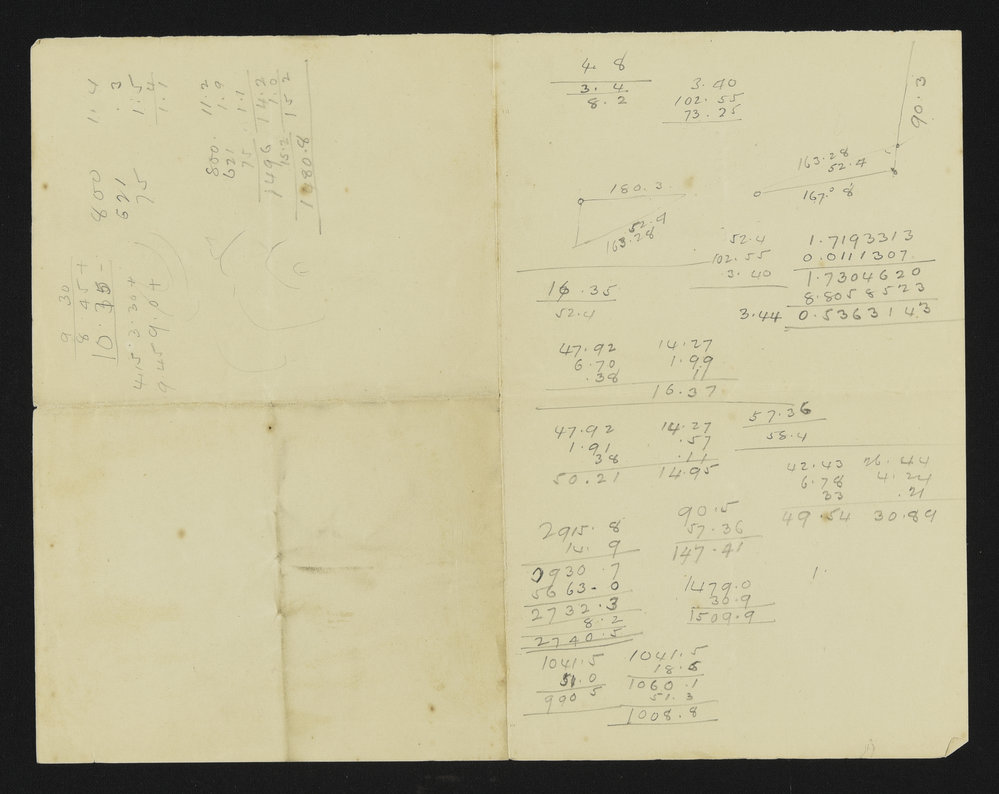 800 11.4
621 .3
75 1.5
1.4
1.1
9 30
8.45+
10.35-
415.3.30+
9459.0+
800. 11.2
621 1.9
75. 1.1
1496 14.2
15.2 1.0
1080.8 15 2
4. 8
3. 4
8. 2
3.40
102.55
73.25
90.3
163.28
52.4
167.° 8'
180.3.
52.9
163.28
16.35
52.4
52.4
102.55
.3.40
3.44
1.7193313
0.0111307
1.7304620
8.8058523
0.5363143
47.92 14.27
6.70 1.99
.38 11
16.37
47.92 14.27
1.91 .57
38 .11
50.21 14.95
57.36
58.4
42.43 26.44
6.78 4.24
33 .21
49.54 30.89
2915. 8
14. 9
2930.7
5663-0
2732.3
8.2
2740.5
90.5
57.36
147.41
1479.0
30.9
1509.9
1.
1041.5
51.0
990 5
1041.5
18.6
1060.1
51.3
1008.8